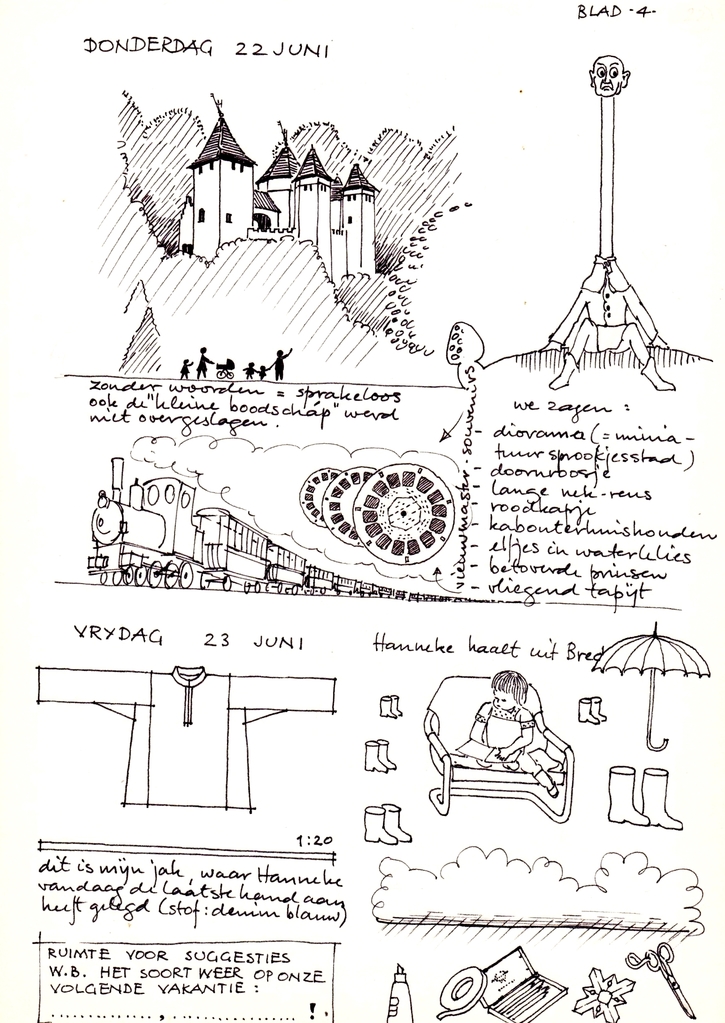 BLAD -4-
DONDERDAG 22 JUNI
zonder woorden = sprakeloos
ook de "kleine boodschap" werd
niet overgeslagen.
viewmaster-souvenirs
we zagen :
- diorama (= minia-
tuur sprookjesstad)
- doornroosje
- lange nek-reus
- roodkapje
- kabouterhuishouden
- elfjes in waterlelies
- betoverde prinsen
- vliegend tapijt
VRYDAG 23 JUNI
Hanneke haalt uit Bred
1:20
dit is mijn jak, waar Hanneke
vandaag de laatste hand aan
heeft gelegd (stof: denim blauw)
RUIMTE VOOR SUGGESTIES
W.B. HET SOORT WEER OP ONZE
VOLGENDE VAKANTIE :
................, ................... !